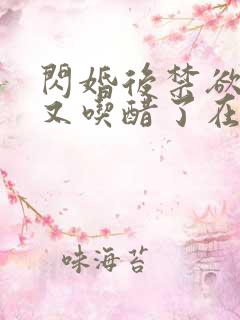 閃婚後禁欲
又喫醋了在
味海苔